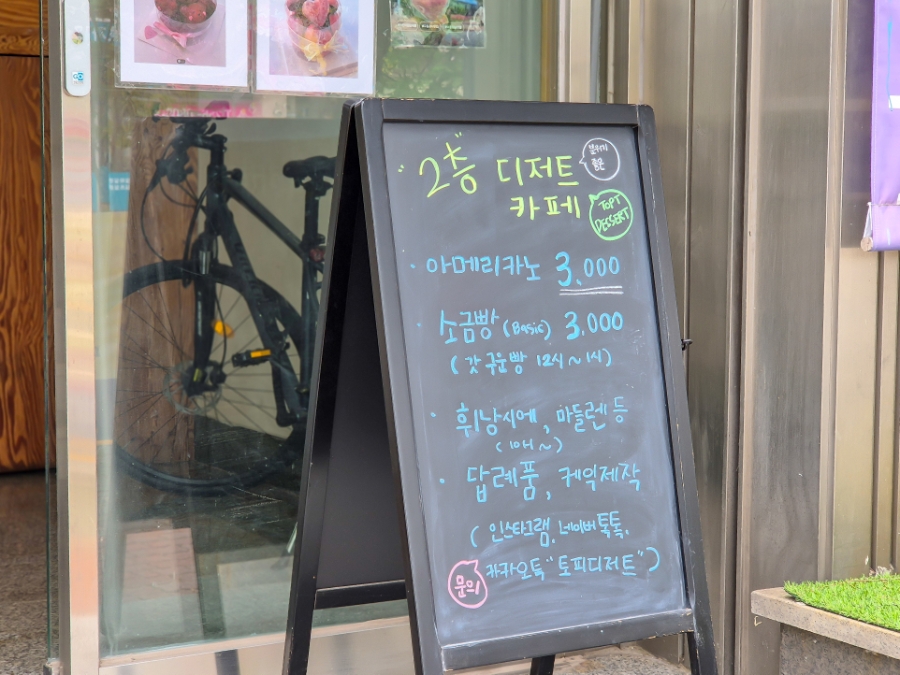 "2층" 디저트
카페
TOPT
DESSERT
· 아메리카노 3,000
· 소금빵 (Basic) 3,000
(갓 구운빵 12시~1시)
· 휘낭시에, 마들렌 등
· 답례품, 케익제작
(인스타그램, 네이버톡톡,
문의
카카오톡 "토피디저트")